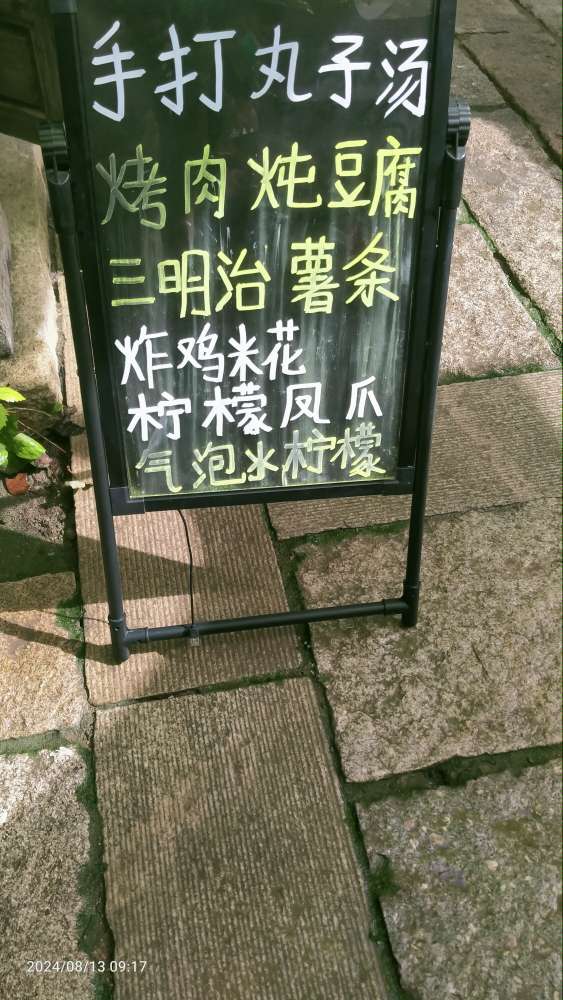 手打丸子汤
烤肉 炖豆腐
三明治 薯条
炸鸡米花
柠檬凤爪
气泡水柠檬
2024/08/13 09:17